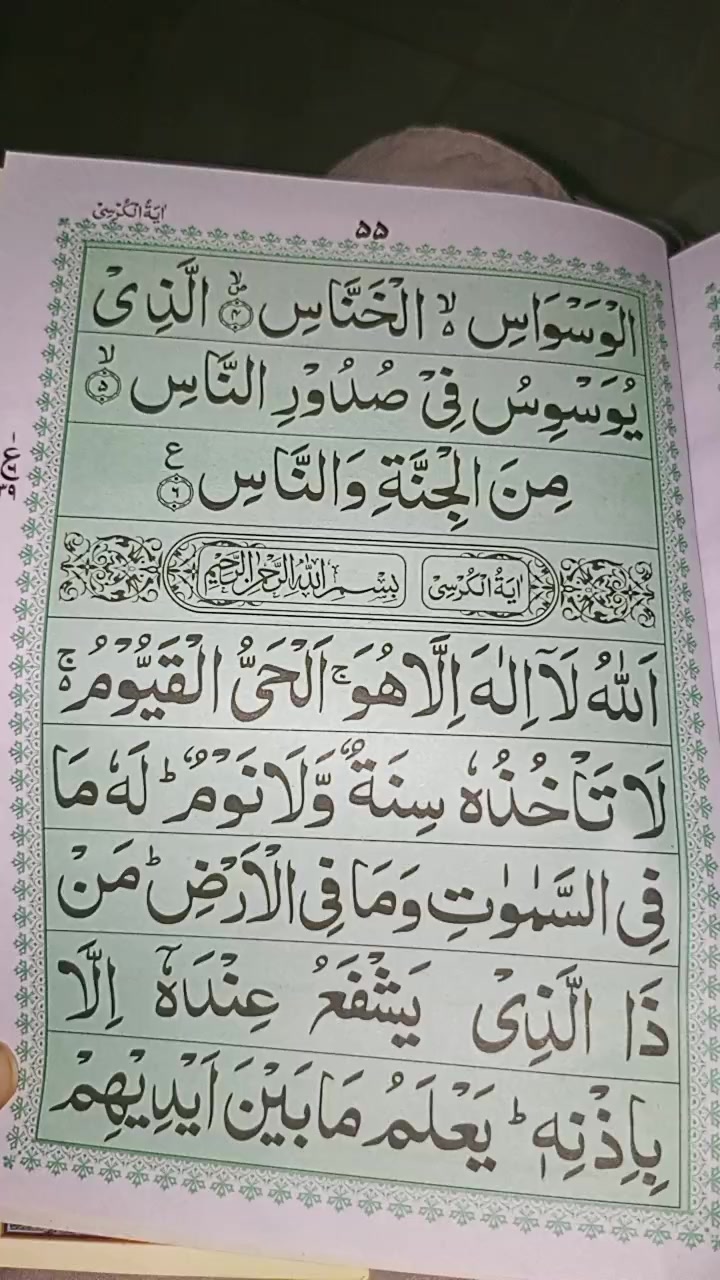 اٰيَةُ الْكُرْسِيْ
۵۵
الْوَسْوَاسِ ۙ۬ الْخَنَّاسِ ۪ۙ﴿۴﴾ الَّذِیْ
يُوَسْوِسُ فِیْ صُدُوْرِ النَّاسِ ۙ﴿۵﴾
مِنَ الْجِنَّةِ وَالنَّاسِ ﴿۶﴾ ع
اٰيَةُ الْكُرْسِيْ بِسْمِ اللّٰهِ الرَّحْمٰنِ الرَّحِيْمِ
اَللّٰهُ لَاۤ اِلٰهَ اِلَّا هُوَ ۚ اَلْحَیُّ الْقَيُّوْمُ ۬ۚ
لَا تَاْخُذُهٗ سِنَةٌ وَّلَا نَوْمٌ ؕ لَهٗ مَا
فِی السَّمٰوٰتِ وَمَا فِی الْاَرْضِ ؕ مَنْ
ذَا الَّذِیْ يَشْفَعُ عِنْدَهٗۤ اِلَّا
بِاِذْنِهٖ ؕ يَعْلَمُ مَا بَيْنَ اَيْدِيْهِمْ